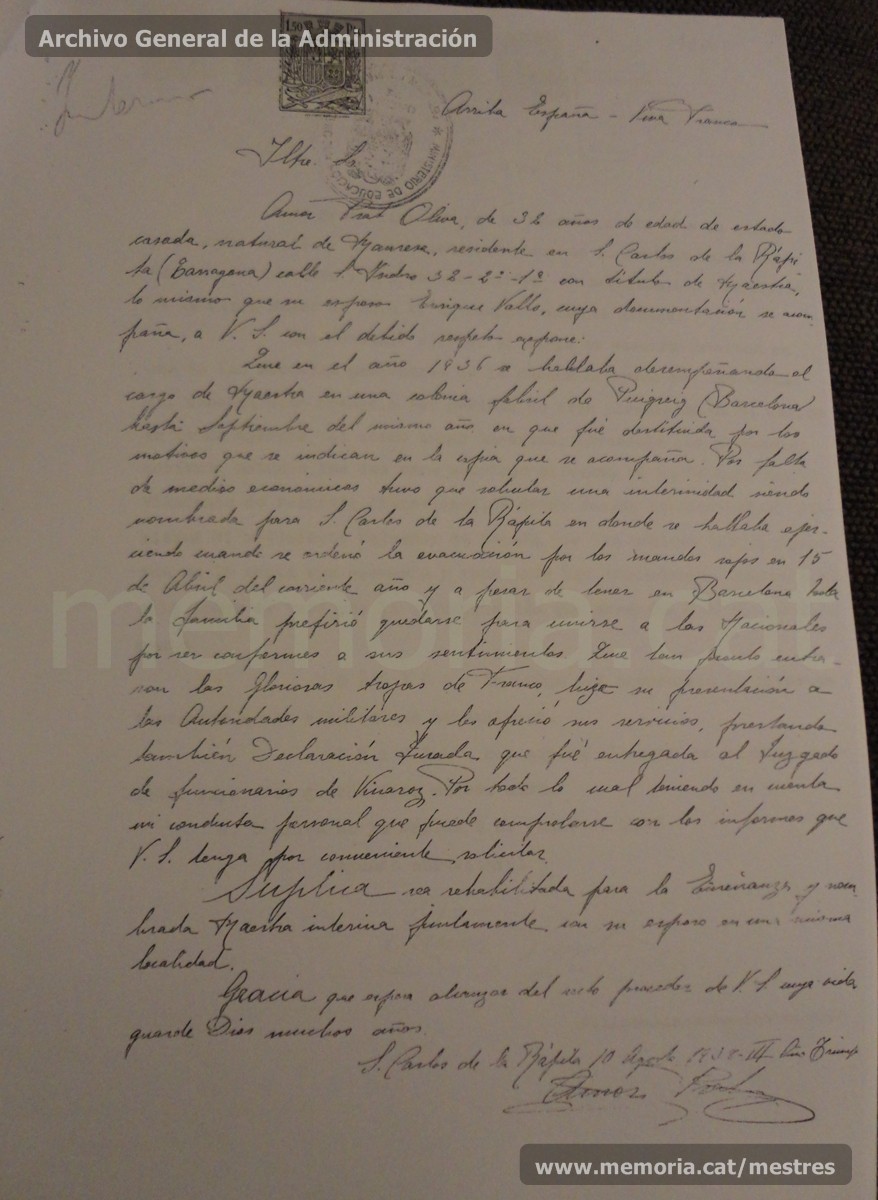 Archivo General de la Administración
1'50
Interina
MINISTERIO DE EDUCACION
Arriba España - Viva Franco
Iltre. Sr.
Amor Prat Oliva, de 32 años de edad de estado
casada, natural de Manresa, residente en S. Carlos de la Rápi-
ta (Tarragona) calle S. Ysidro 32-2º-1ª con título de Maestra,
lo mismo que su esposo Enrique Valls, cuya documentación se acom-
paña, a V. S. con el debido respeto expone:
Que en el año 1936 se hallaba desempeñando el
cargo de Maestra en una colonia fabril de Puigreig (Barcelona)
hasta Septiembre del mismo año en que fué destituida por los
motivos que se indican en la copia que se acompaña. Por falta
de medios económicos tuvo que solicitar una interinidad siendo
nombrada para S. Carlos de la Rápita en donde se hallaba ejer-
ciendo cuando se ordenó la evacuación por los mandos rojos en 15
de Abril del corriente año y a pesar de tener en Barcelona toda
la familia prefirió quedarse para unirse a los Nacionales
por ser conformes a sus sentimientos. Que tan pronto entra-
ron las gloriosas tropas de Franco, hizo su presentación a
las Autoridades militares y les ofreció sus servicios, prestando
también Declaración Jurada que fué entregada al Juzgado
de funcionarios de Vinaroz. Por todo lo cual teniendo en cuenta
mi conducta personal que puede comprobarse con los informes que
V. S. tenga por conveniente solicitar
Suplica sea rehabilitada para la Enseñanza y nom-
brada Maestra interina juntamente con su esposo en una misma
localidad.
Gracia que espera alcanzar del recto proceder de V. S. cuya vida
guarde Dios muchos años.
S. Carlos de la Rápita 10 Agosto 1938-III Año Triunf
Amor Prat
memoria.cat
www.memoria.cat/mestres